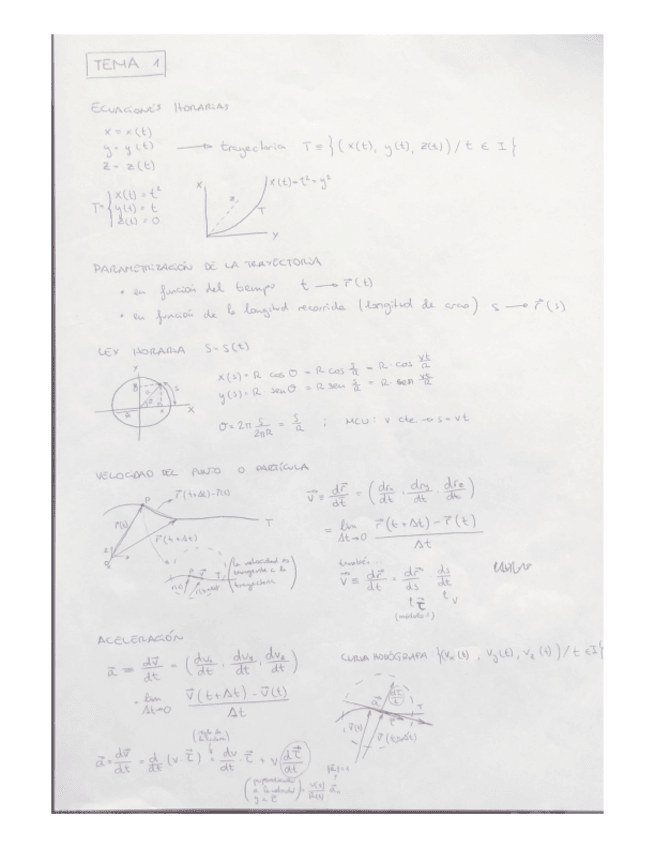 TEMA 1
ECUACIONES HORARIAS
x = x(t)
y = y(t)
z = z(t)
→ trayectoria T ≡ {(x(t), y(t), z(t)) / t ∈ I}
T ≡ { x(t) = t²
y(t) = t
z(t) = 0
x
z
x(t) = t² = y²
T
y
PARAMETRIZACIÓN DE LA TRAYECTORIA
• en función del tiempo t → r⃗(t)
• en función de la longitud recorrida (longitud de arco) s → r⃗(s)
LEY HORARIA s = s(t)
x(s) = R cos θ = R cos s/R = R cos vt/R
y(s) = R sen θ = R sen s/R = R sen vt/R
θ = 2π s/2πR = s/R ; MCU: v cte → s = vt
VELOCIDAD DEL PUNTO O PARTÍCULA
P
r⃗(t+Δt) - r⃗(t)
r⃗(t)
r⃗(t+Δt)
T
(la velocidad es
tangente a la
trayectoria)
v⃗ ≡ dr⃗/dt = (drx/dt, dry/dt, drz/dt)
= lim Δt→0 r⃗(t+Δt) - r⃗(t) / Δt
v⃗ ≡ dr⃗/dt = dr⃗/ds ds/dt
τ⃗ v
(módulo 1)
ACELERACIÓN
a⃗ = dv⃗/dt = (dvx/dt, dvy/dt, dvz/dt)
= lim Δt→0 v⃗(t+Δt) - v⃗(t) / Δt
a⃗ = dv⃗/dt = d/dt (v · τ⃗) = dv/dt · τ⃗ + v dτ⃗/dt
CURVA HODÓGRAFA {(vx(t), vy(t), vz(t)) / t ∈ I}
a⃗
dτ⃗/dt
T
v⃗(t)
v⃗(t+Δt)